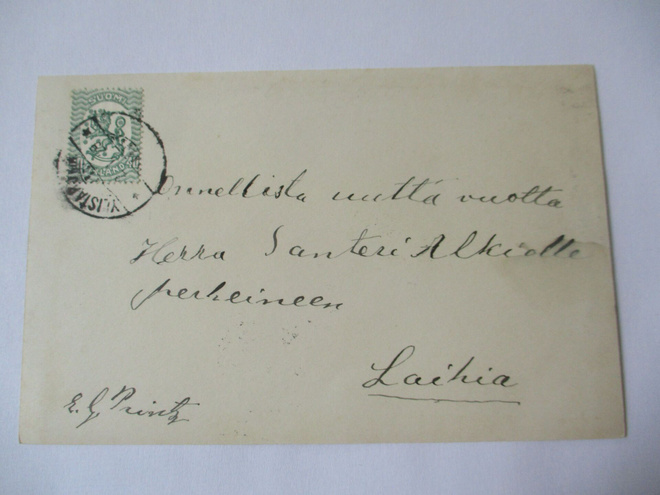 SUOMI
Onnellista uutta vuotta
Herra Santeri Alkiolle
perheineen
Laihia
E. G. Printz